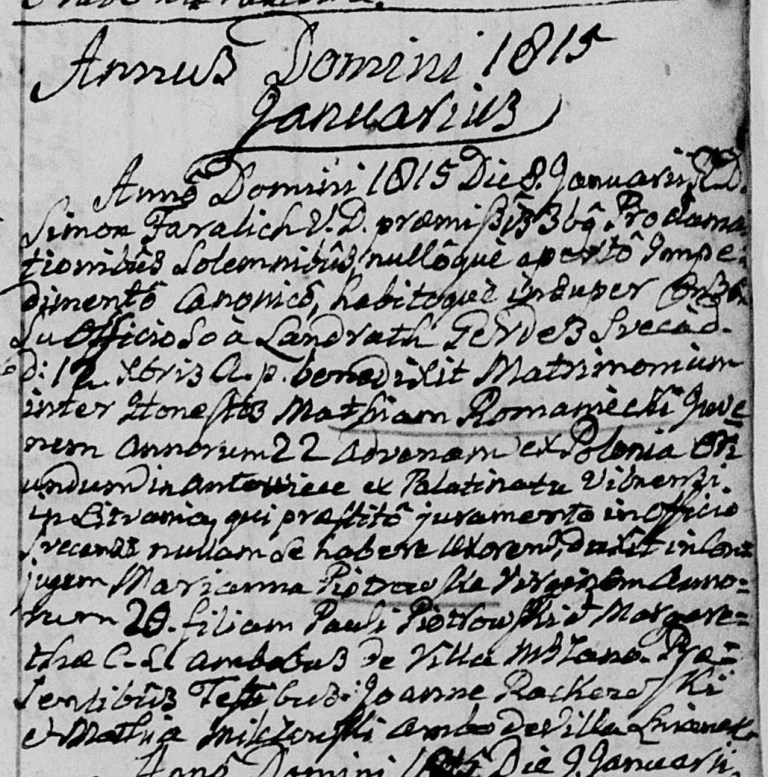 Annus Domini 1815
Januarius
Annô Domini 1815 Die 8. Januarii R. D.
Simon Taralich V. D. præmißis 3bq. Proclama
tionibûs Solemnibûs, nullôque apertô Impe-
dimentô Canonicô, habitoque insuper
Officioso à Landrath Gerdes
d: 12. Xbris A. p. benedixit Matrimonium
inter Honestos Mathiam Romaniecki Juve
nem annorum 22 advenam ex Polonia Ori
undum in Antowiece ex Palatinatu Vilnensi
in Litvania, qui præstitô juramento in Officio
nullam se habere Uxorem, duxit in Con=
jugem Marianna Piotrowska Virginem Anno=
rum 20. filiam Pauli Piotrowski et Margare=
thæ C. L. ambobus de Villa Præ=
sentibûs Testibus: Joanne
et Mathia ambo de Villa
Annô Domini 1815 Die 9. Januarii